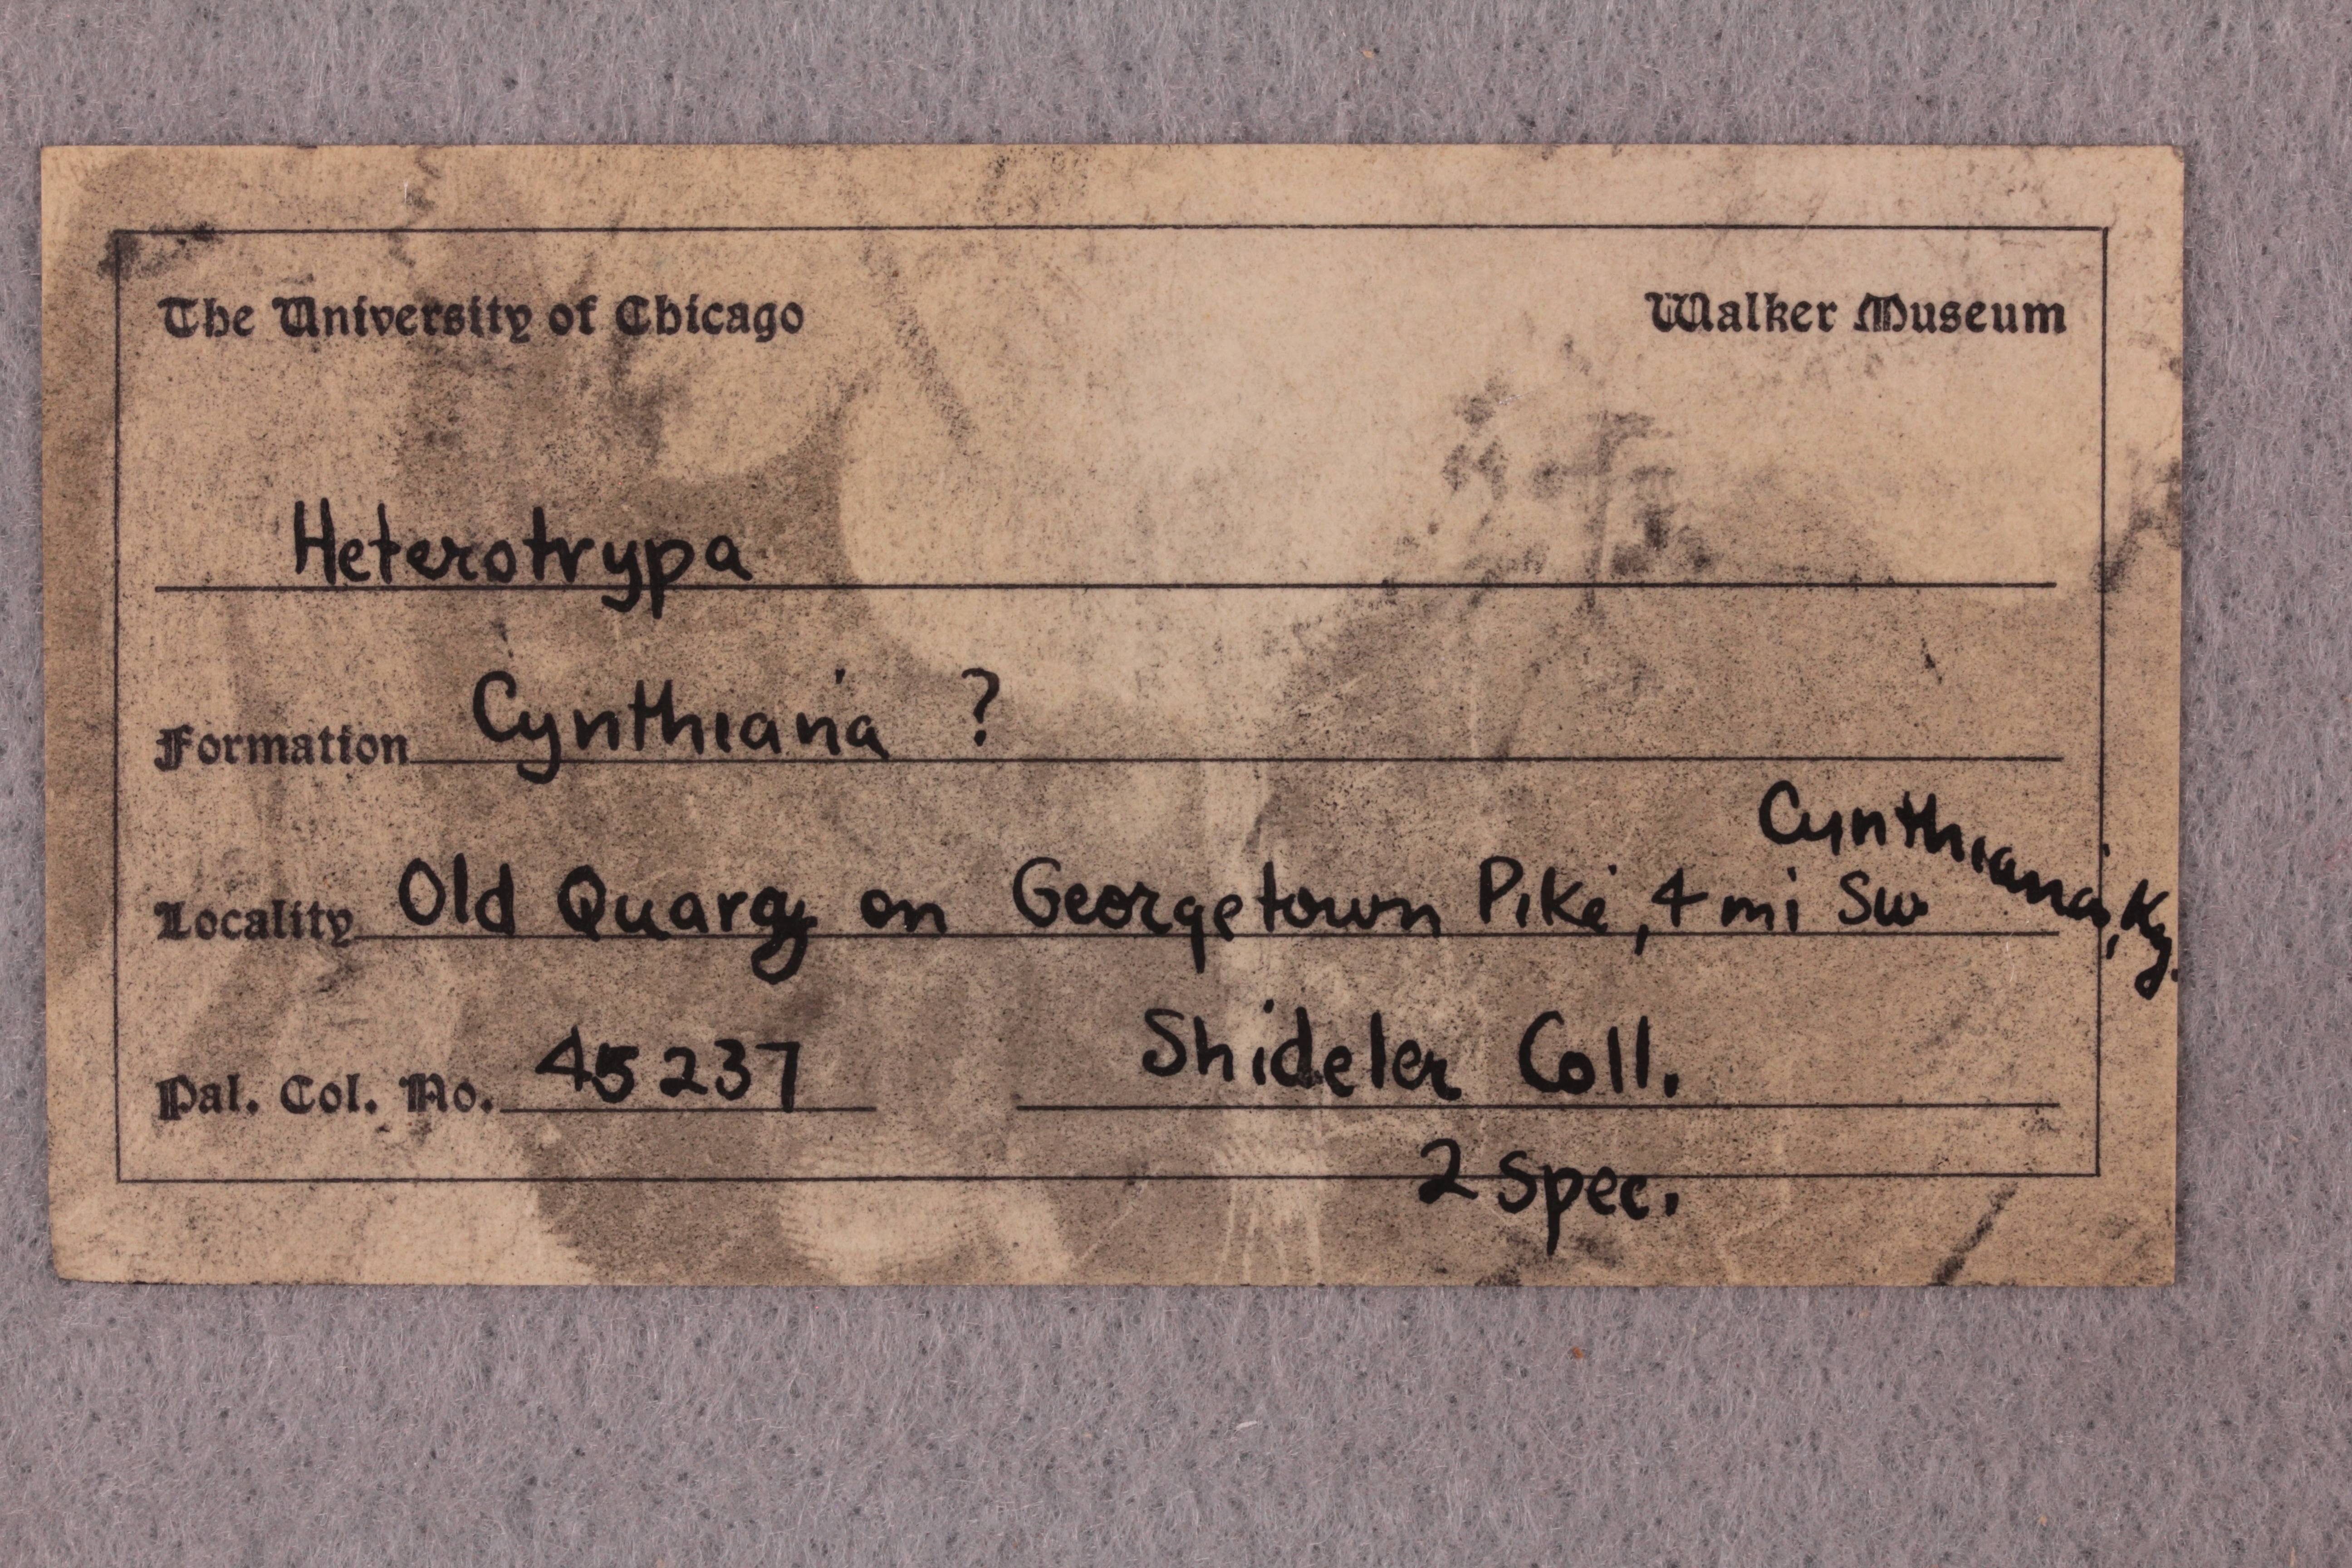 The University of Chicago Walker Museum
Heterotrypa
Formation Cynthiana ?
Locality Old Quarry on Georgetown Pike, 4 mi SW Cynthiana, Ky.
Pal. Col. No. 45237 Shideler Coll.
2 spec.